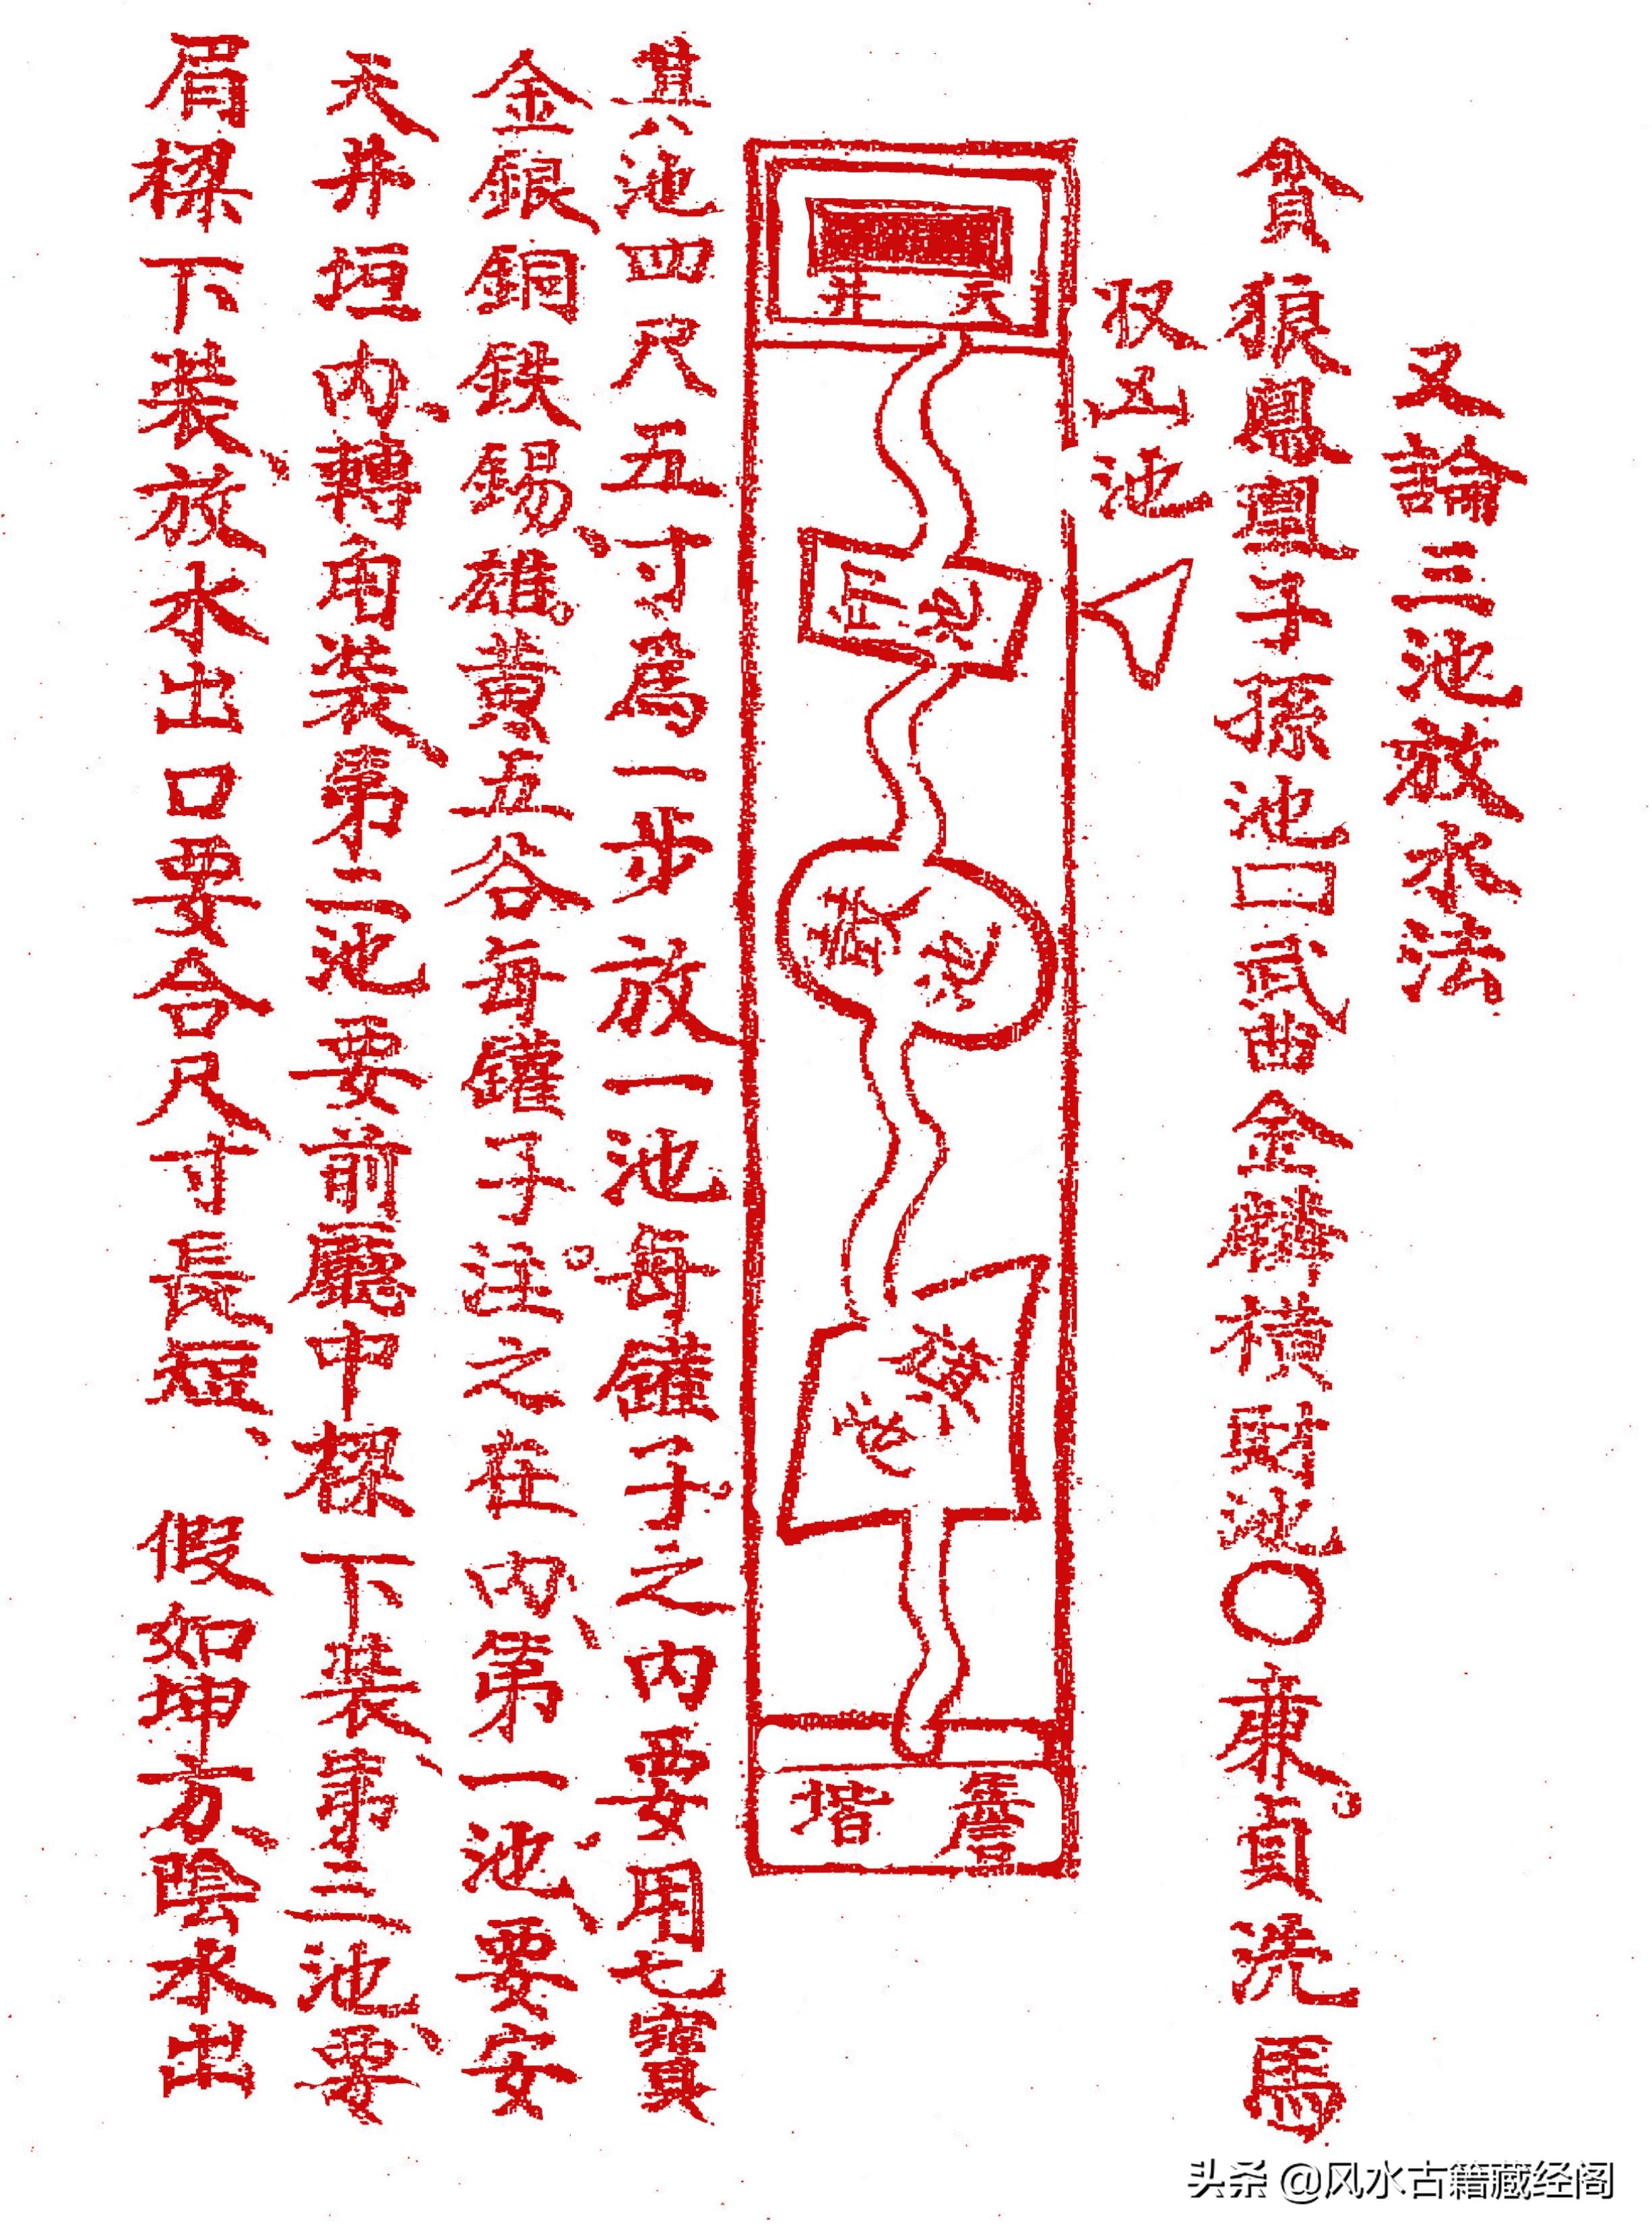 又論三池放水法
貪狼鳳凰子孫池口武曲金麟積財池〇廉貞洗馬
収凶池
天井
池
池
池
簷堦
其池四尺五寸爲一步放一池每罐子。之内要用七寳
金銀銅鉄錫、雄。黄五谷每罐子。注之在内、第一池、要安
天井垣内、轉角装、第二池要前廳中樑下装、第三池、要
眉樑下装、放水出口要合尺寸長短、假如坤方、陰水出
头条 @风水古籍藏经阁